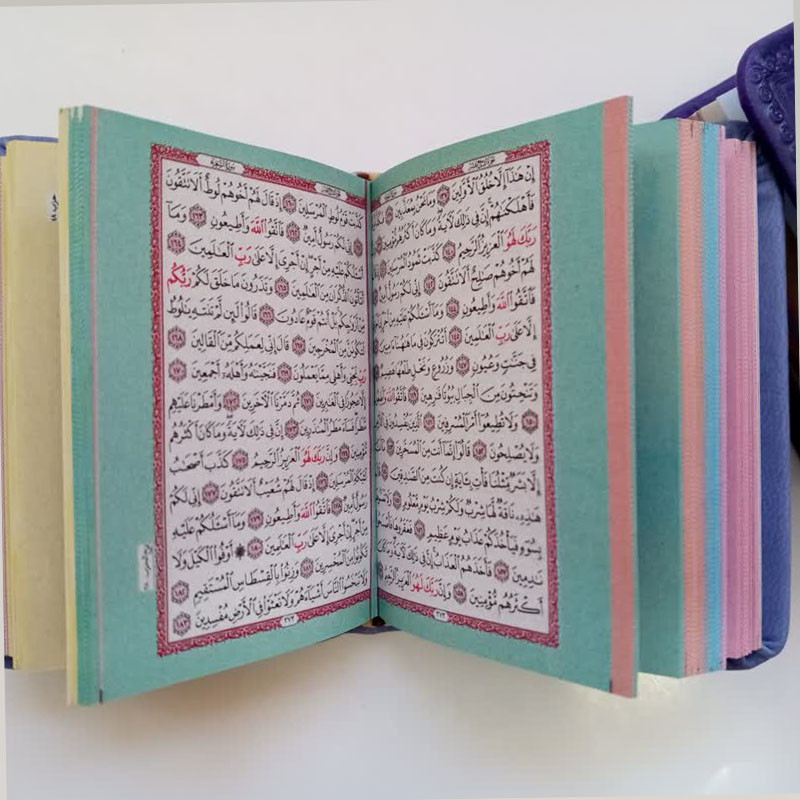 إِنْ هَٰذَآ إِلَّا خُلُقُ ٱلْأَوَّلِينَ ١٣٧ وَمَا نَحْنُ بِمُعَذَّبِينَ ١٣٨
فَأَهْلَكْنَٰهُمْ إِنَّ فِى ذَٰلِكَ لَءَايَةً وَمَا كَانَ أَكْثَرُهُم مُّؤْمِنِينَ
رَبَّكَ لَهُوَ ٱلْعَزِيزُ ٱلرَّحِيمُ ١٤٠ كَذَّبَتْ ثَمُودُ ٱلْمُرْسَلِينَ ١٤١
لَهُمْ أَخُوهُمْ صَٰلِحٌ أَلَا تَتَّقُونَ ١٤٢ إِنِّى لَكُمْ رَسُولٌ أَمِينٌ
فَٱتَّقُوا۟ ٱللَّهَ وَأَطِيعُونِ ١٤٤ وَمَآ أَسْـَٔلُكُمْ عَلَيْهِ مِنْ أَجْرٍ إِنْ أَجْرِىَ
إِلَّا عَلَىٰ رَبِّ ٱلْعَٰلَمِينَ ١٤٥ أَتُتْرَكُونَ فِى مَا هَٰهُنَآ ءَامِنِينَ
فِى جَنَّٰتٍ وَعُيُونٍ ١٤٧ وَزُرُوعٍ وَنَخْلٍ طَلْعُهَا هَضِيمٌ
وَتَنْحِتُونَ مِنَ ٱلْجِبَالِ بُيُوتًا فَٰرِهِينَ ١٤٩ فَٱتَّقُوا۟ ٱللَّهَ وَأَطِيعُونِ
١٥٠ وَلَا تُطِيعُوٓا۟ أَمْرَ ٱلْمُسْرِفِينَ ١٥١ ٱلَّذِينَ يُفْسِدُونَ فِى ٱلْأَرْضِ
وَلَا يُصْلِحُونَ ١٥٢ قَالُوٓا۟ إِنَّمَآ أَنتَ مِنَ ٱلْمُسَحَّرِينَ
إِلَّا بَشَرٌ مِّثْلُنَا فَأْتِ بِـَٔايَةٍ إِن كُنتَ مِنَ ٱلصَّٰدِقِينَ
هَٰذِهِۦ نَاقَةٌ لَّهَا شِرْبٌ وَلَكُمْ شِرْبُ يَوْمٍ مَّعْلُومٍ ١٥٥ وَلَا تَمَسُّوهَا
بِسُوٓءٍ فَيَأْخُذَكُمْ عَذَابُ يَوْمٍ عَظِيمٍ ١٥٦ فَعَقَرُوهَا فَأَصْبَحُوا۟
نَٰدِمِينَ ١٥٧ فَأَخَذَهُمُ ٱلْعَذَابُ إِنَّ فِى ذَٰلِكَ لَءَايَةً وَمَا كَانَ
أَكْثَرُهُم مُّؤْمِنِينَ ١٥٨ وَإِنَّ رَبَّكَ لَهُوَ ٱلْعَزِيزُ ٱلرَّحِيمُ
٣٧٣
كَذَّبَتْ قَوْمُ لُوطٍ ٱلْمُرْسَلِينَ ١٦٠ إِذْ قَالَ لَهُمْ أَخُوهُمْ لُوطٌ أَلَا تَتَّقُونَ
١٦١ إِنِّى لَكُمْ رَسُولٌ أَمِينٌ ١٦٢ فَٱتَّقُوا۟ ٱللَّهَ وَأَطِيعُونِ ١٦٣ وَمَآ
أَسْـَٔلُكُمْ عَلَيْهِ مِنْ أَجْرٍ إِنْ أَجْرِىَ إِلَّا عَلَىٰ رَبِّ ٱلْعَٰلَمِينَ ١٦٤
أَتَأْتُونَ ٱلذُّكْرَانَ مِنَ ٱلْعَٰلَمِينَ ١٦٥ وَتَذَرُونَ مَا خَلَقَ لَكُمْ رَبُّكُم
مِّنْ أَزْوَٰجِكُم بَلْ أَنتُمْ قَوْمٌ عَادُونَ ١٦٦ قَالُوا۟ لَئِن لَّمْ تَنتَهِ يَٰلُوطُ
لَتَكُونَنَّ مِنَ ٱلْمُخْرَجِينَ ١٦٧ قَالَ إِنِّى لِعَمَلِكُم مِّنَ ٱلْقَالِينَ ١٦٨
رَبِّ نَجِّنِى وَأَهْلِى مِمَّا يَعْمَلُونَ ١٦٩ فَنَجَّيْنَٰهُ وَأَهْلَهُۥٓ أَجْمَعِينَ ١٧٠
إِلَّا عَجُوزًا فِى ٱلْغَٰبِرِينَ ١٧١ ثُمَّ دَمَّرْنَا ٱلْءَاخَرِينَ ١٧٢ وَأَمْطَرْنَا عَلَيْهِم
مَّطَرًا فَسَآءَ مَطَرُ ٱلْمُنذَرِينَ ١٧٣ إِنَّ فِى ذَٰلِكَ لَءَايَةً وَمَا كَانَ أَكْثَرُهُم
مُّؤْمِنِينَ ١٧٤ وَإِنَّ رَبَّكَ لَهُوَ ٱلْعَزِيزُ ٱلرَّحِيمُ ١٧٥ كَذَّبَ أَصْحَٰبُ
لْـَٔيْكَةِ ٱلْمُرْسَلِينَ ١٧٦ إِذْ قَالَ لَهُمْ شُعَيْبٌ أَلَا تَتَّقُونَ ١٧٧ إِنِّى لَكُمْ
رَسُولٌ أَمِينٌ ١٧٨ فَٱتَّقُوا۟ ٱللَّهَ وَأَطِيعُونِ ١٧٩ وَمَآ أَسْـَٔلُكُمْ عَلَيْهِ
مِنْ أَجْرٍ إِنْ أَجْرِىَ إِلَّا عَلَىٰ رَبِّ ٱلْعَٰلَمِينَ ١٨٠ ۞ أَوْفُوا۟ ٱلْكَيْلَ وَلَا
تَكُونُوا۟ مِنَ ٱلْمُخْسِرِينَ ١٨١ وَزِنُوا۟ بِٱلْقِسْطَاسِ ٱلْمُسْتَقِيمِ ١٨٢
وَلَا تَبْخَسُوا۟ ٱلنَّاسَ أَشْيَآءَهُمْ وَلَا تَعْثَوْا۟ فِى ٱلْأَرْضِ مُفْسِدِينَ ١٨٣
٣٧٤